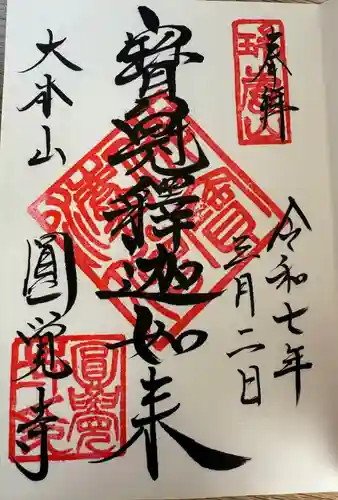 奉拝
令和七年
三月二日
寶冠釋迦如来
大本山
圓覚寺